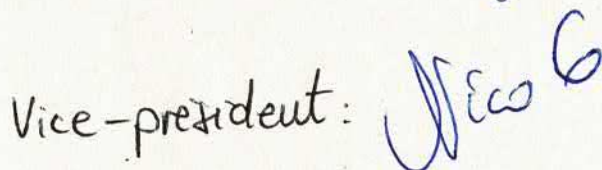 Vice-president: Nico G